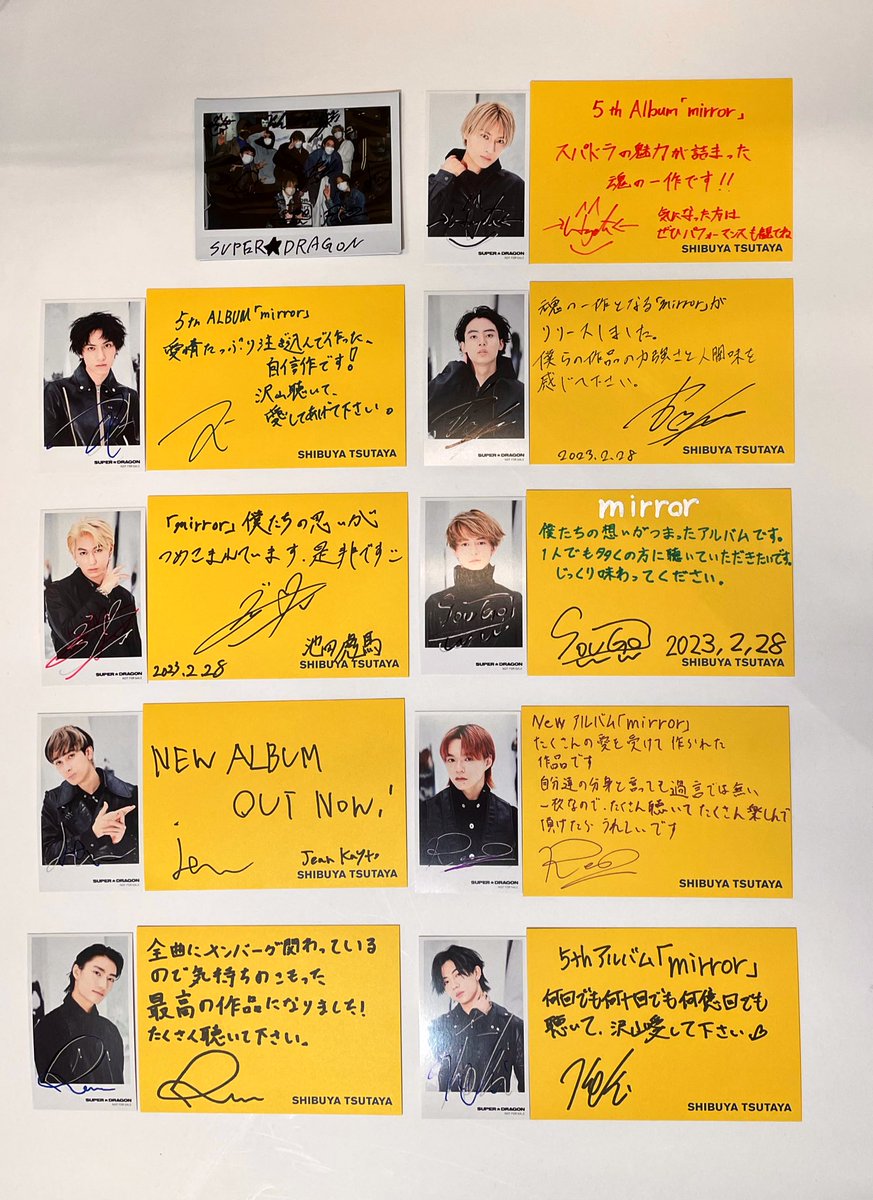 SUPER★DRAGON
5th Album「mirror」
スパドラの魅力が詰まった
魂の一作です!!
気になった方は
ぜひパフォーマンスも観てね
SHIBUYA TSUTAYA
SUPER★DRAGON
NOT FOR SALE
5th ALBUM「mirror」
愛情たっぷり注ぎ込んで作った、
自信作です!
沢山聴いて、
愛してあげて下さい。
SHIBUYA TSUTAYA
SUPER★DRAGON
NOT FOR SALE
魂の一作となる「mirror」が
リリースしました。
僕らの作品の力強さと人間味を
感じてください。
2023.2.28
SHIBUYA TSUTAYA
SUPER★DRAGON
NOT FOR SALE
「mirror」僕たちの思いが
つめこまれています、是非です
池田彪馬
2023.2.28
SHIBUYA TSUTAYA
SUPER★DRAGON
NOT FOR SALE
mirror
僕たちの想いがつまったアルバムです。
1人でも多くの方に聴いていただきたいです。
じっくり味わってください。
SOUGO
SOUGO 2023,2,28
SHIBUYA TSUTAYA
SUPER★DRAGON
NOT FOR SALE
NEW ALBUM
OUT NOW!
Jean
Jean Kayto
SHIBUYA TSUTAYA
SUPER★DRAGON
NOT FOR SALE
New アルバム「mirror」
たくさんの愛を受けて作られた
作品です
自分達の分身と言っても過言では無い
一枚なので、たくさん聴いてたくさん楽しんで
頂けたらうれしいです
SHIBUYA TSUTAYA
SUPER★DRAGON
NOT FOR SALE
全曲にメンバーが関わっている
ので気持ちのこもった
最高の作品になりました!
たくさん聴いて下さい。
SHIBUYA TSUTAYA
SUPER★DRAGON
NOT FOR SALE
5thアルバム「mirror」
何回でも何十回でも何億回でも
聴いて、沢山愛して下さい
SHIBUYA TSUTAYA
SUPER★DRAGON
NOT FOR SALE